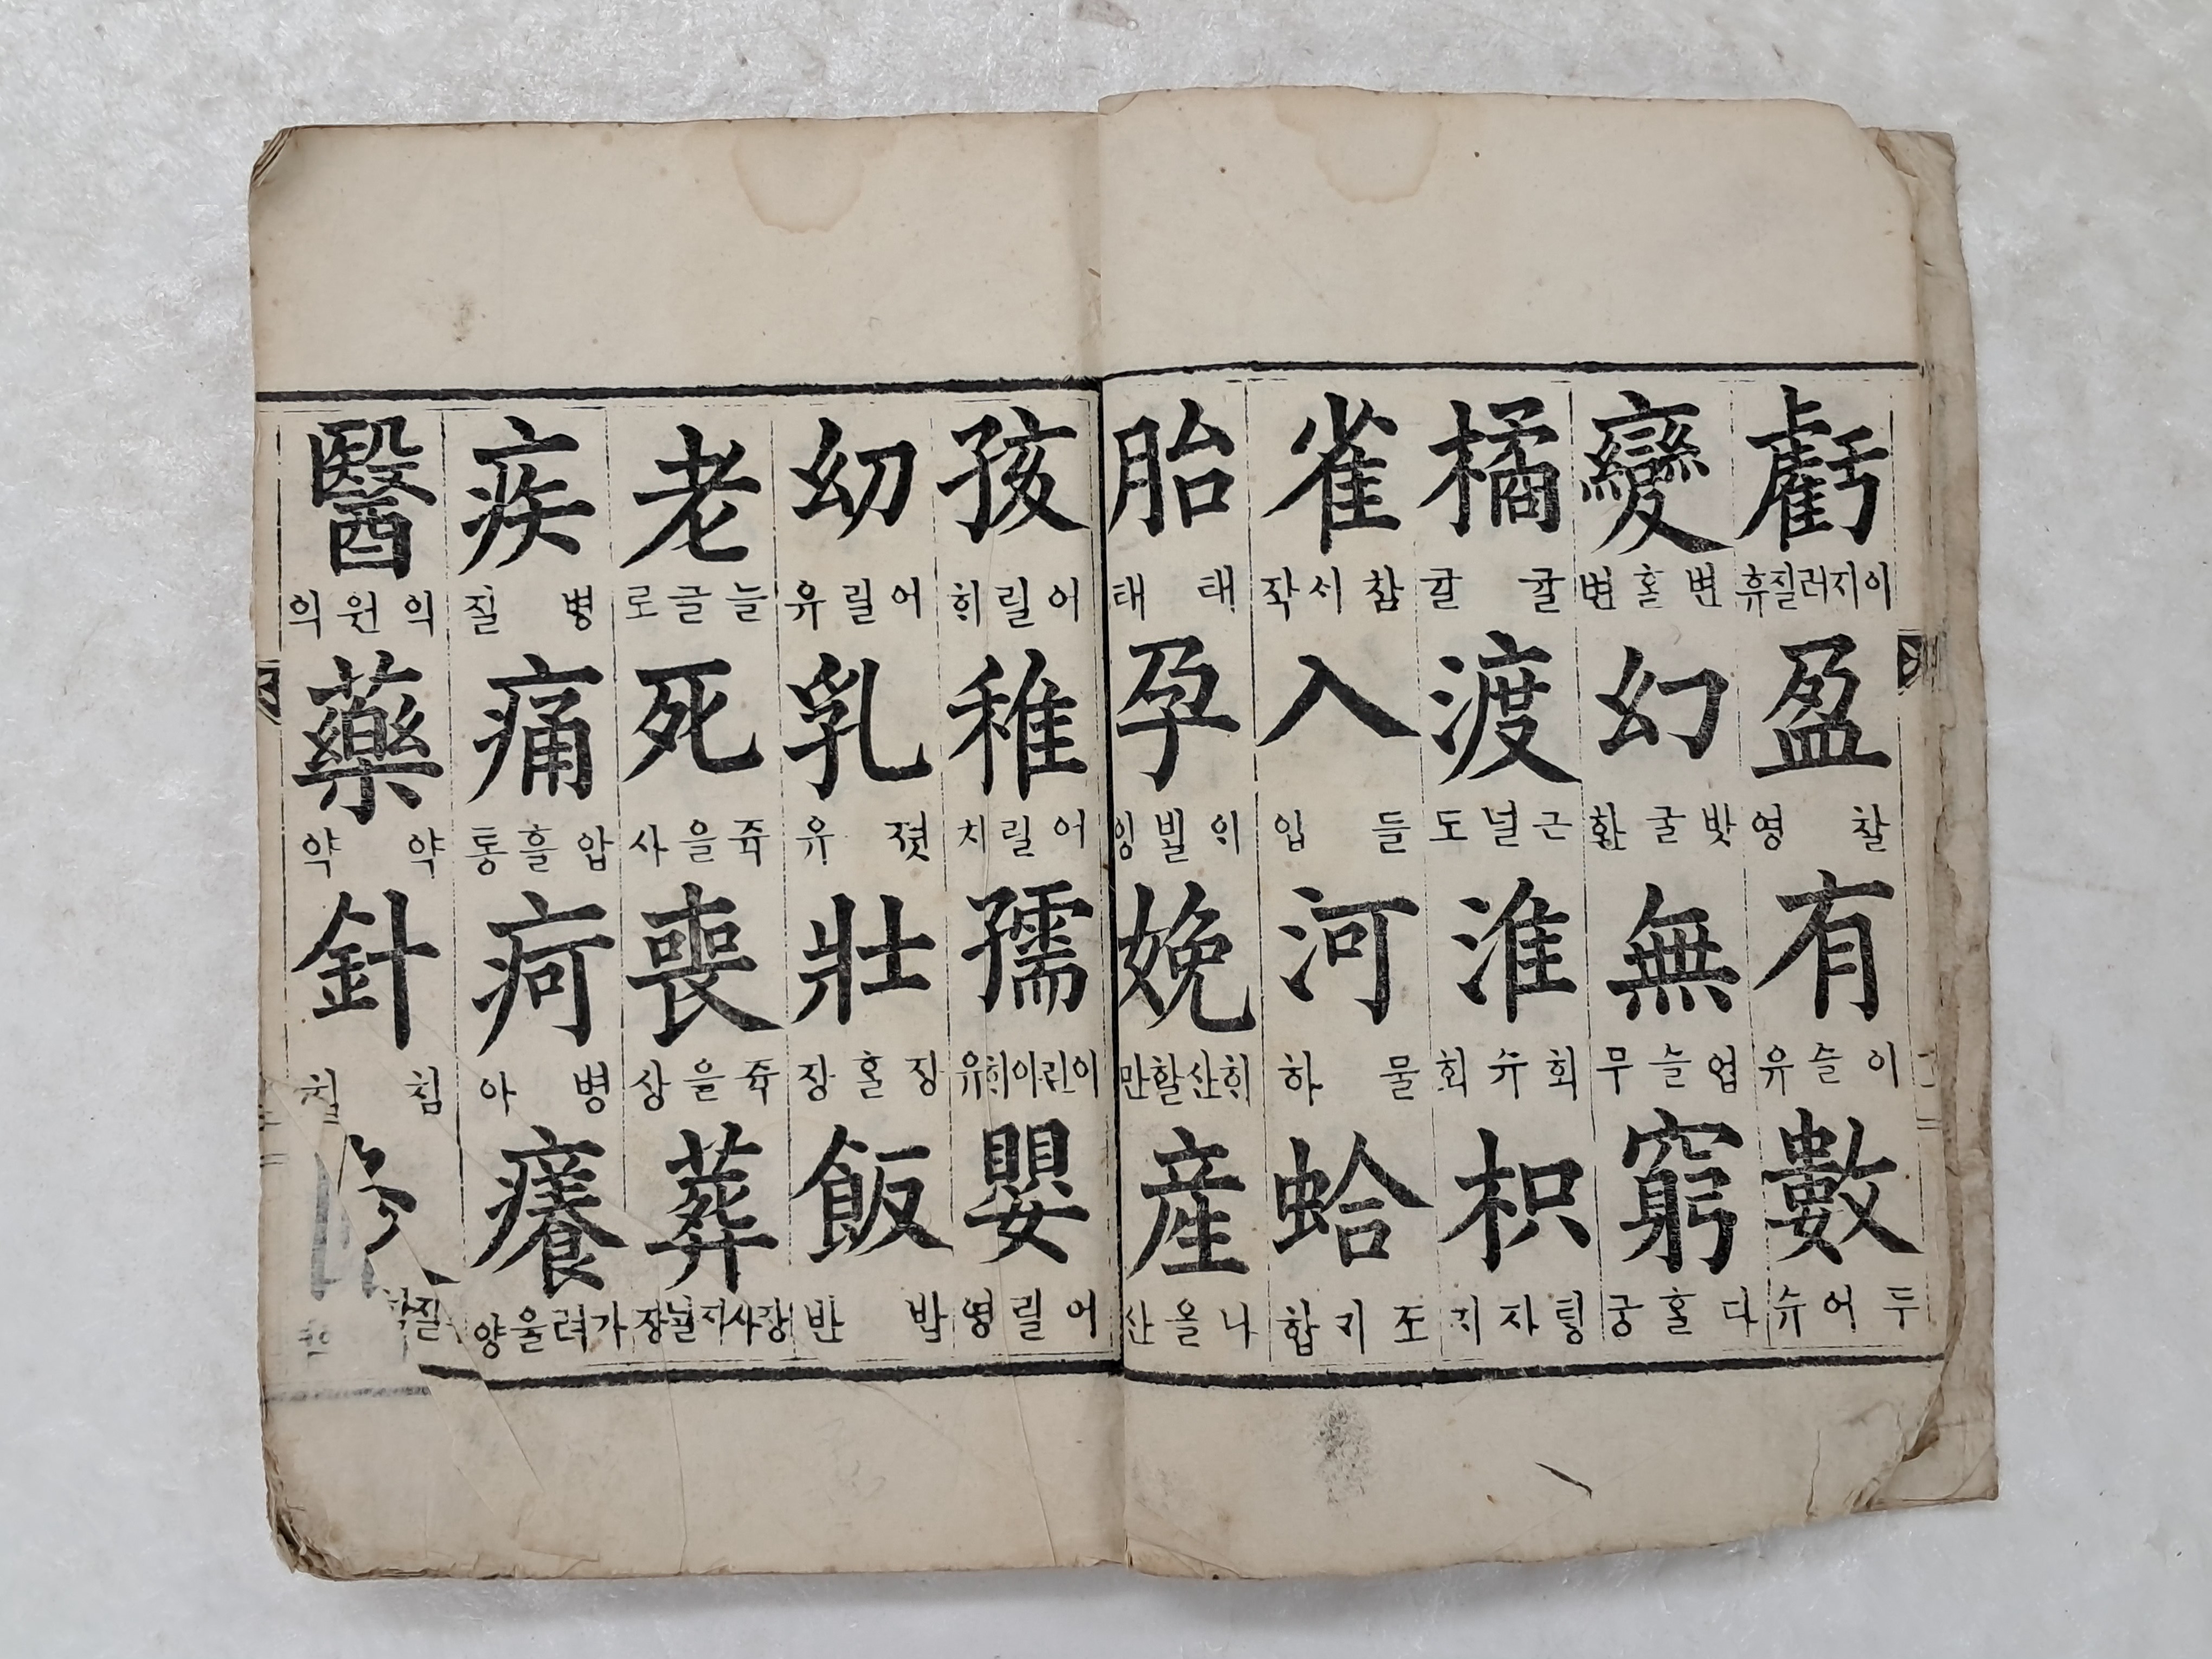 虧
이지러질휴
盈
찰영
有
이슬유
數
두어슈
變
변홀변
幻
밧굴환
無
업슬무
窮
다홀궁
橘
귤귤
渡
근널도
淮
회슈회
枳
팅자지
雀
참서작
入
들입
河
물하
蛤
조기합
胎
태태
孕
ᄋᆡ빌잉
娩
ᄒᆡ산할만
産
나을산
孩
어릴ᄒᆡ
稚
어릴치
孺
어린아ᄒᆡ유
嬰
어릴영
幼
어릴유
乳
졋유
壯
장홀장
飯
밥반
老
늘글로
死
쥭을사
喪
쥭을상
葬
장사지낼장
疾
병질
痛
압흘통
疴
병아
癢
가려울양
醫
의원의
藥
약약
針
침침